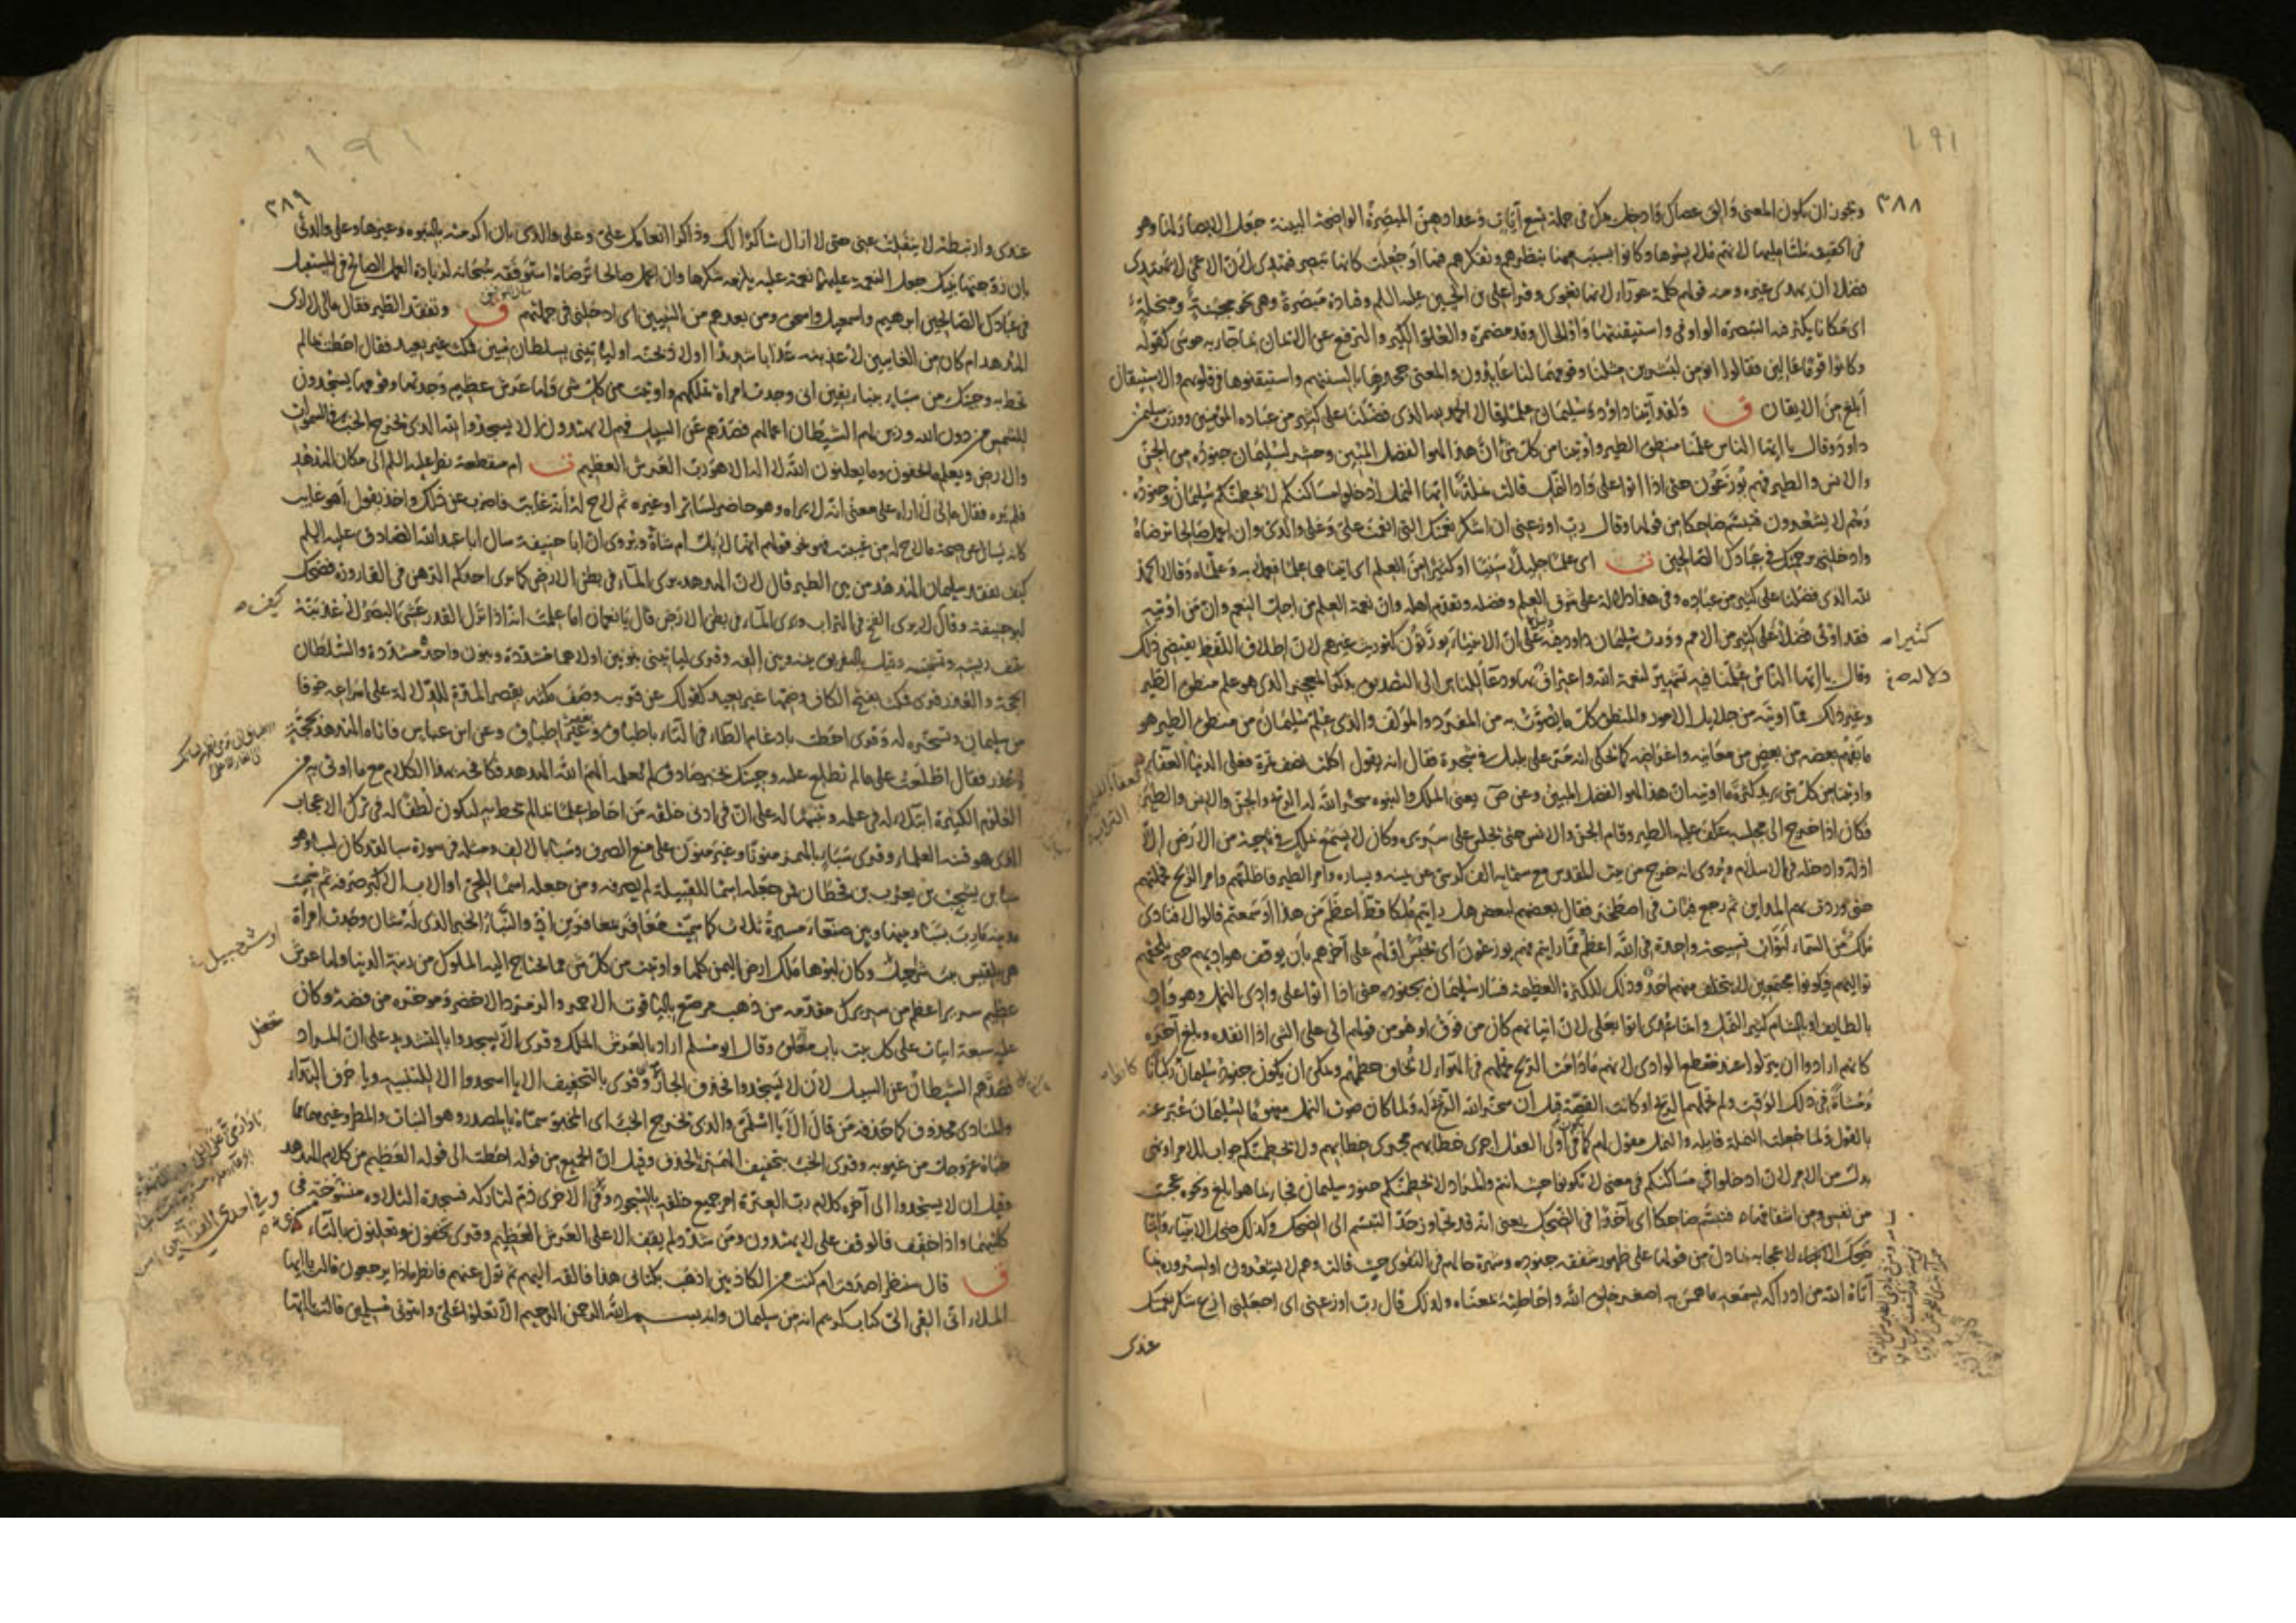 ١٩١
٣٨٨
ويجوز ان يكون المعنى وألق عصاك وادخل يدك فى جملة تسع آيات وعدادهن المبصرة الواضحة البينة جعل الابصار لها وهو
فى الحقيقة لمتأمليها لانهم ملابسوها وكانوا بسبب منها بنظرهم وتفكرهم فيها او جعلت كانها تبصر فتهدى لان الاعمى لا يهتدى
فضلا ان يهدى غيره ومنه قولهم كلمة عوراء لانها تغوى وقرأ على بن الحسين عليه السلم وقتادة مبصرة وهى نحو مجبنة ومبخلة
اى مكانا يكثر فيه التبصرة الواو فى واستيقنتها واو للحال وقد مضمرة والعلو الكبر والترفع عن الايمان بما جاء به موسى كقوله
وكانوا قوما عالين فقالوا انؤمن لبشرين مثلنا وقومهما لنا عابدون والمعنى جحدوها بالسنتهم واستيقنوها فى قلوبهم والاستيقان
أبلغ من الايقان ق ولقد آتينا داود وسليمان علما وقالا الحمد لله الذى فضلنا على كثير من عباده المؤمنين وورث سليمن
داود وقال يا ايها الناس علمنا منطق الطير واوتينا من كل شئ ان هذا لهو الفضل المبين وحشر لسليمان جنوده من الجن
والانس والطير فهم يوزعون حتى اذا اتوا على واد النمل قالت نملة يا ايها النمل ادخلوا مساكنكم لا يحطمنكم سليمان وجنوده
وهم لا يشعرون فتبسم ضاحكا من قولها وقال رب اوزعنى ان اشكر نعمتك التى انعمت على وعلى والدى وان اعمل صالحا ترضاه
وادخلنى برحمتك فى عبادك الصالحين ت اى علما جليلا سنيا او كثيرا من العلم اى اتيناهما علما فعملا به وعلماه وقالا الحمد
لله الذى فضلنا على كثير من عباده وفى هذا دلالة على شرف العلم وفضله وتقدم اهله وان نعمة العلم من اجل النعم وان من اوتيه
فقد اوتى فضلا على كثير من الامم وورث سليمان داود فيه دلالة على ان الانبياء يورثون كتوريث غيرهم لان اطلاق اللفظ يقتضى ذلك
كثيرا صـ
وقال يا ايها الناس علمنا فيه تشهير لنعمة الله واعتراف بها ودعاء للناس الى التصديق بذكر المعجز الذى هو علم منطق الطير
دلالة صـ
وغير ذلك مما اوتيه من جلايل الامور والمنطق كل ما يصوت به من المفرد والمؤلف والذى علم سليمان من منطق الطير هو
ما يفهم بعضه من بعض من معانيه واغراضه كما يحكى انه مر على بلبل فى شجرة فقال انه يقول اكلت نصف تمرة فعلى الدنيا العفاء
واوتينا من كل شئ يريد كثرة ما اوتيه ان هذا لهو الفضل المبين وعن ص يعنى الملك والنبوه سخر الله له الريح والجن والانس والطير
فكان اذا خرج الى مجلسه عكف عليه الطير وقام الجن والانس حتى يجلس على سريره وكان لا يسمع بملك فى ناحية من الارض الا
اذله وادخله فى الاسلام ويروى انه خرج من بيت المقدس مع ستمايه الف كرسى عن يمينه ويساره وامر الطير فاظلتهم وامر الريح فحملتهم
حتى وردت بهم المداين ثم رجع فبات فى اصطخر فقال بعضهم لبعض هل رايتم ملكا قط اعظم من هذا او سمعتم قالوا لا فنادى
ملك من السماء لثواب تسبيحة واحدة فى الله اعظم مما رايتم فهم يوزعون اى يحبس اولهم على آخرهم بان يوقف هواديهم حتى يلحقهم
تواليهم فيكونوا مجتمعين لا يتخلف منهم احد وذلك للكثرة العظيمة فسار سليمان بجنوده حتى اذا اتوا على وادى النمل وهو واد
بالطايف او بالشام كثير النمل وانما عدى اتوا بعلى لان اتيانهم كان من فوق او هو من قولهم اتى على الشئ اذا انفده وبلغ آخره
كانهم ارادوا ان ينزلوا عند منقطع الوادى لانهم ما دامت الريح تحملهم فى الهواء لا يخاف حطمهم ويمكن ان يكون جنود سليمان ركبانا
ومشاة فى ذلك الوقت ولم تحملهم الريح او كانت القصة قبل ان سخر الله الريح له ولما كان صوت النمل مفهوما لسليمان عبر عنه
بالقول ولما جعلت النملة قايلة والنمل مقول لهم كما فى اولى العقل اجرى خطابهم مجرى خطابهم ولا يحطمنكم جواب للامر او نهى
بدل من الامر لان ادخلوا فى مساكنكم فى معنى لا تكونوا حيث انتم والمراد لا يحطمنكم جنود سليمان فجاء بما هو ابلغ ونحوه عجبت
من نفسى ومن اشفاقها فتبسم ضاحكا اى آخذا فى الضحك يعنى انه قد تجاوز حد التبسم الى الضحك وكذلك ضحك الانبياء وانما
ضحك لاعجابه بما دل من قولها على ظهور شفقة جنوده وشهرة حالهم فى التقوى حيث قالت وهم لا يشعرون او لسروره بما
آتاه الله من ادراكه بسمعه ما همس به اصغر خلق الله واحاطته بمعناه ولذلك قال رب اوزعنى اى اجعلنى ازع شكر نعمتك
عندى
١٩١
٣٨٩
عندى وارتبطه لا ينفلت عنى حتى لا ازال شاكرا لك وذاكرا انعامك على وعلى والدى بان اكرمته بالنبوه وغيرها وعلى والدتى
بان زوجتها نبيك جعل النعمة عليهما نعمة عليه يلزمه شكرها وان اعمل صالحا ترضاه استوفقه سبحانه لزيادة العمل الصالح فى المستقبل
فى عبادك الصالحين ابرهيم واسمعيل واسحق ومن بعدهم من النبيين اى ادخلنى فى جملتهم ق وتفقد الطير فقال مالى لا ارى
الهدهد ام كان من الغايبين لاعذبنه عذابا شديدا او لاذبحنه او لياتينى بسلطان مبين فمكث غير بعيد فقال احطت بما لم
تحط به وجئتك من سبا بنبا يقين انى وجدت امراة تملكهم واوتيت من كل شئ ولها عرش عظيم وجدتها وقومها يسجدون
للشمس من دون الله وزين لهم الشيطان اعمالهم فصدهم عن السبيل فهم لا يهتدون الا يسجدوا لله الذى يخرج الخبء فى السموات
والارض ويعلم ما تخفون وما يعلنون الله لا اله الا هو رب العرش العظيم ت ام منقطعة نظر عليه السلم الى مكان الهدهد
فلم يره فقال مالى لا اراه على معنى انه لا يراه وهو حاضر لساتر او غيره ثم لاح له انه غايب فاضرب عن ذلك واخذ يقول اهو غايب
كانه يسال عن صحة ما لاح له من غيبته فهو نحو قولهم انها لابل ام شاة ويروى ان ابا حنيفة سال ابا عبد الله الصادق عليه السلم
كيف تفقد سليمان الهدهد من بين الطير قال لان الهدهد يرى الماء فى بطن الارض كما يرى احدكم الدهن فى القارورة فضحك
ابو حنيفة وقال لا يرى الفخ فى التراب ويرى الماء فى بطن الارض قال يا نعمان اما علمت انه اذا نزل القدر غشى البصر لاعذبنه
كيف صـ
بنتف ريشه وتشميسه وقيل بالتفريق بينه وبين الفه وقرئ لياتيننى بنونين اولاهما مشددة وبنون واحدة مشددة والسلطان
الحجة والعذر قرئ فمكث بفتح الكاف وضمها غير بعيد كقولك عن قريب وصف مكثه بقصر المدة للدلالة على اسراعه خوفا
من سليمان وتسخره له وقرى احطت بادغام الطاء فى التاء باطباق وبغير اطباق وعن ابن عباس فاتاه الهدهد بحجة
وعذر فقال اطلعت على ما لم تطلع عليه وجئتك بخبر صادق لم تعلمه الهم الله الهدهد فكافحه بهذا الكلام مع ما اوتى به من
العلوم الكثيرة ابتلاء له فى علمه وتنبيها له على ان فى ادنى خلقه من احاط علما بما لم يحط به ليكون لطفا له فى ترك الاعجاب
الذى هو فتنة العلماء وقرى سبا بالهمز منونا وغير منون على منع الصرف وسبا بالالف ومثله فى سورة سبا لقد كان لسبا وهو
سبا بن يشجب بن يعرب بن قحطان فمن جعله اسما للقبيلة لم يصرفه ومن جعله اسما للحى او الاب الاكبر صرفه ثم سميت
مدينة مأرب بسبا وبينها وبين صنعاء مسيرة ثلاث كما سميت معافر بمعافر بن اد والنبأ الخبر الذى له شان وجدت امراة
هى بلقيس بنت شرحيل وكان ابوها ملك ارض اليمن كلها واوتيت من كل شئ مما يحتاج اليه الملوك من زينة الدنيا ولها عرش
او شرحبيل
عظيم سرير اعظم من سريرك مقدمه من ذهب مرصع بالياقوت الاحمر والزمرد الاخضر ومؤخره من فضة وكان
عليه سبعة ابيات على كل بيت باب مغلق وقال ابو مسلم اراد بالعرش الملك وقرى الا يسجدوا بالتشديد على ان المراد
فصدهم الشيطان عن السبيل لان لا يسجدوا فحذف الجار وقرى بالتخفيف الا يا اسجدوا الا للتنبيه ويا حرف النداء
والمنادى محذوف كما حذفه من قال الا يا اسلمى والذى يخرج الخبء اى المخبو سماه بالمصدر وهو النبات والمطر وغيرهما مما
خباه عز وجل من غيوبه وقرى الخب بتخفيف الهمزة بالحذف وقيل ان الجميع من قوله احطت الى قوله العظيم من كلام الهدهد
وقيل ان لا يسجدوا الى آخره كلام رب العزة امر جميع خلقه بالسجود وفى الاخرى ذم لتاركه فسجدة التلاوة
كلتيهما واذا خفف فالوقف على لا يهتدون ومن شدد لم يقف الا على العرش العظيم وقرى تخفون وتعلنون بالتاء
ق قال سننظر اصدقت ام كنت من الكاذبين اذهب بكتابى هذا فالقه اليهم ثم تول عنهم فانظر ماذا يرجعون قالت يا ايها
الملا انى القى الى كتاب كريم انه من سليمان وانه بسم الله الرحمن الرحيم الا تعلوا على واتونى مسلمين قالت يا ايها